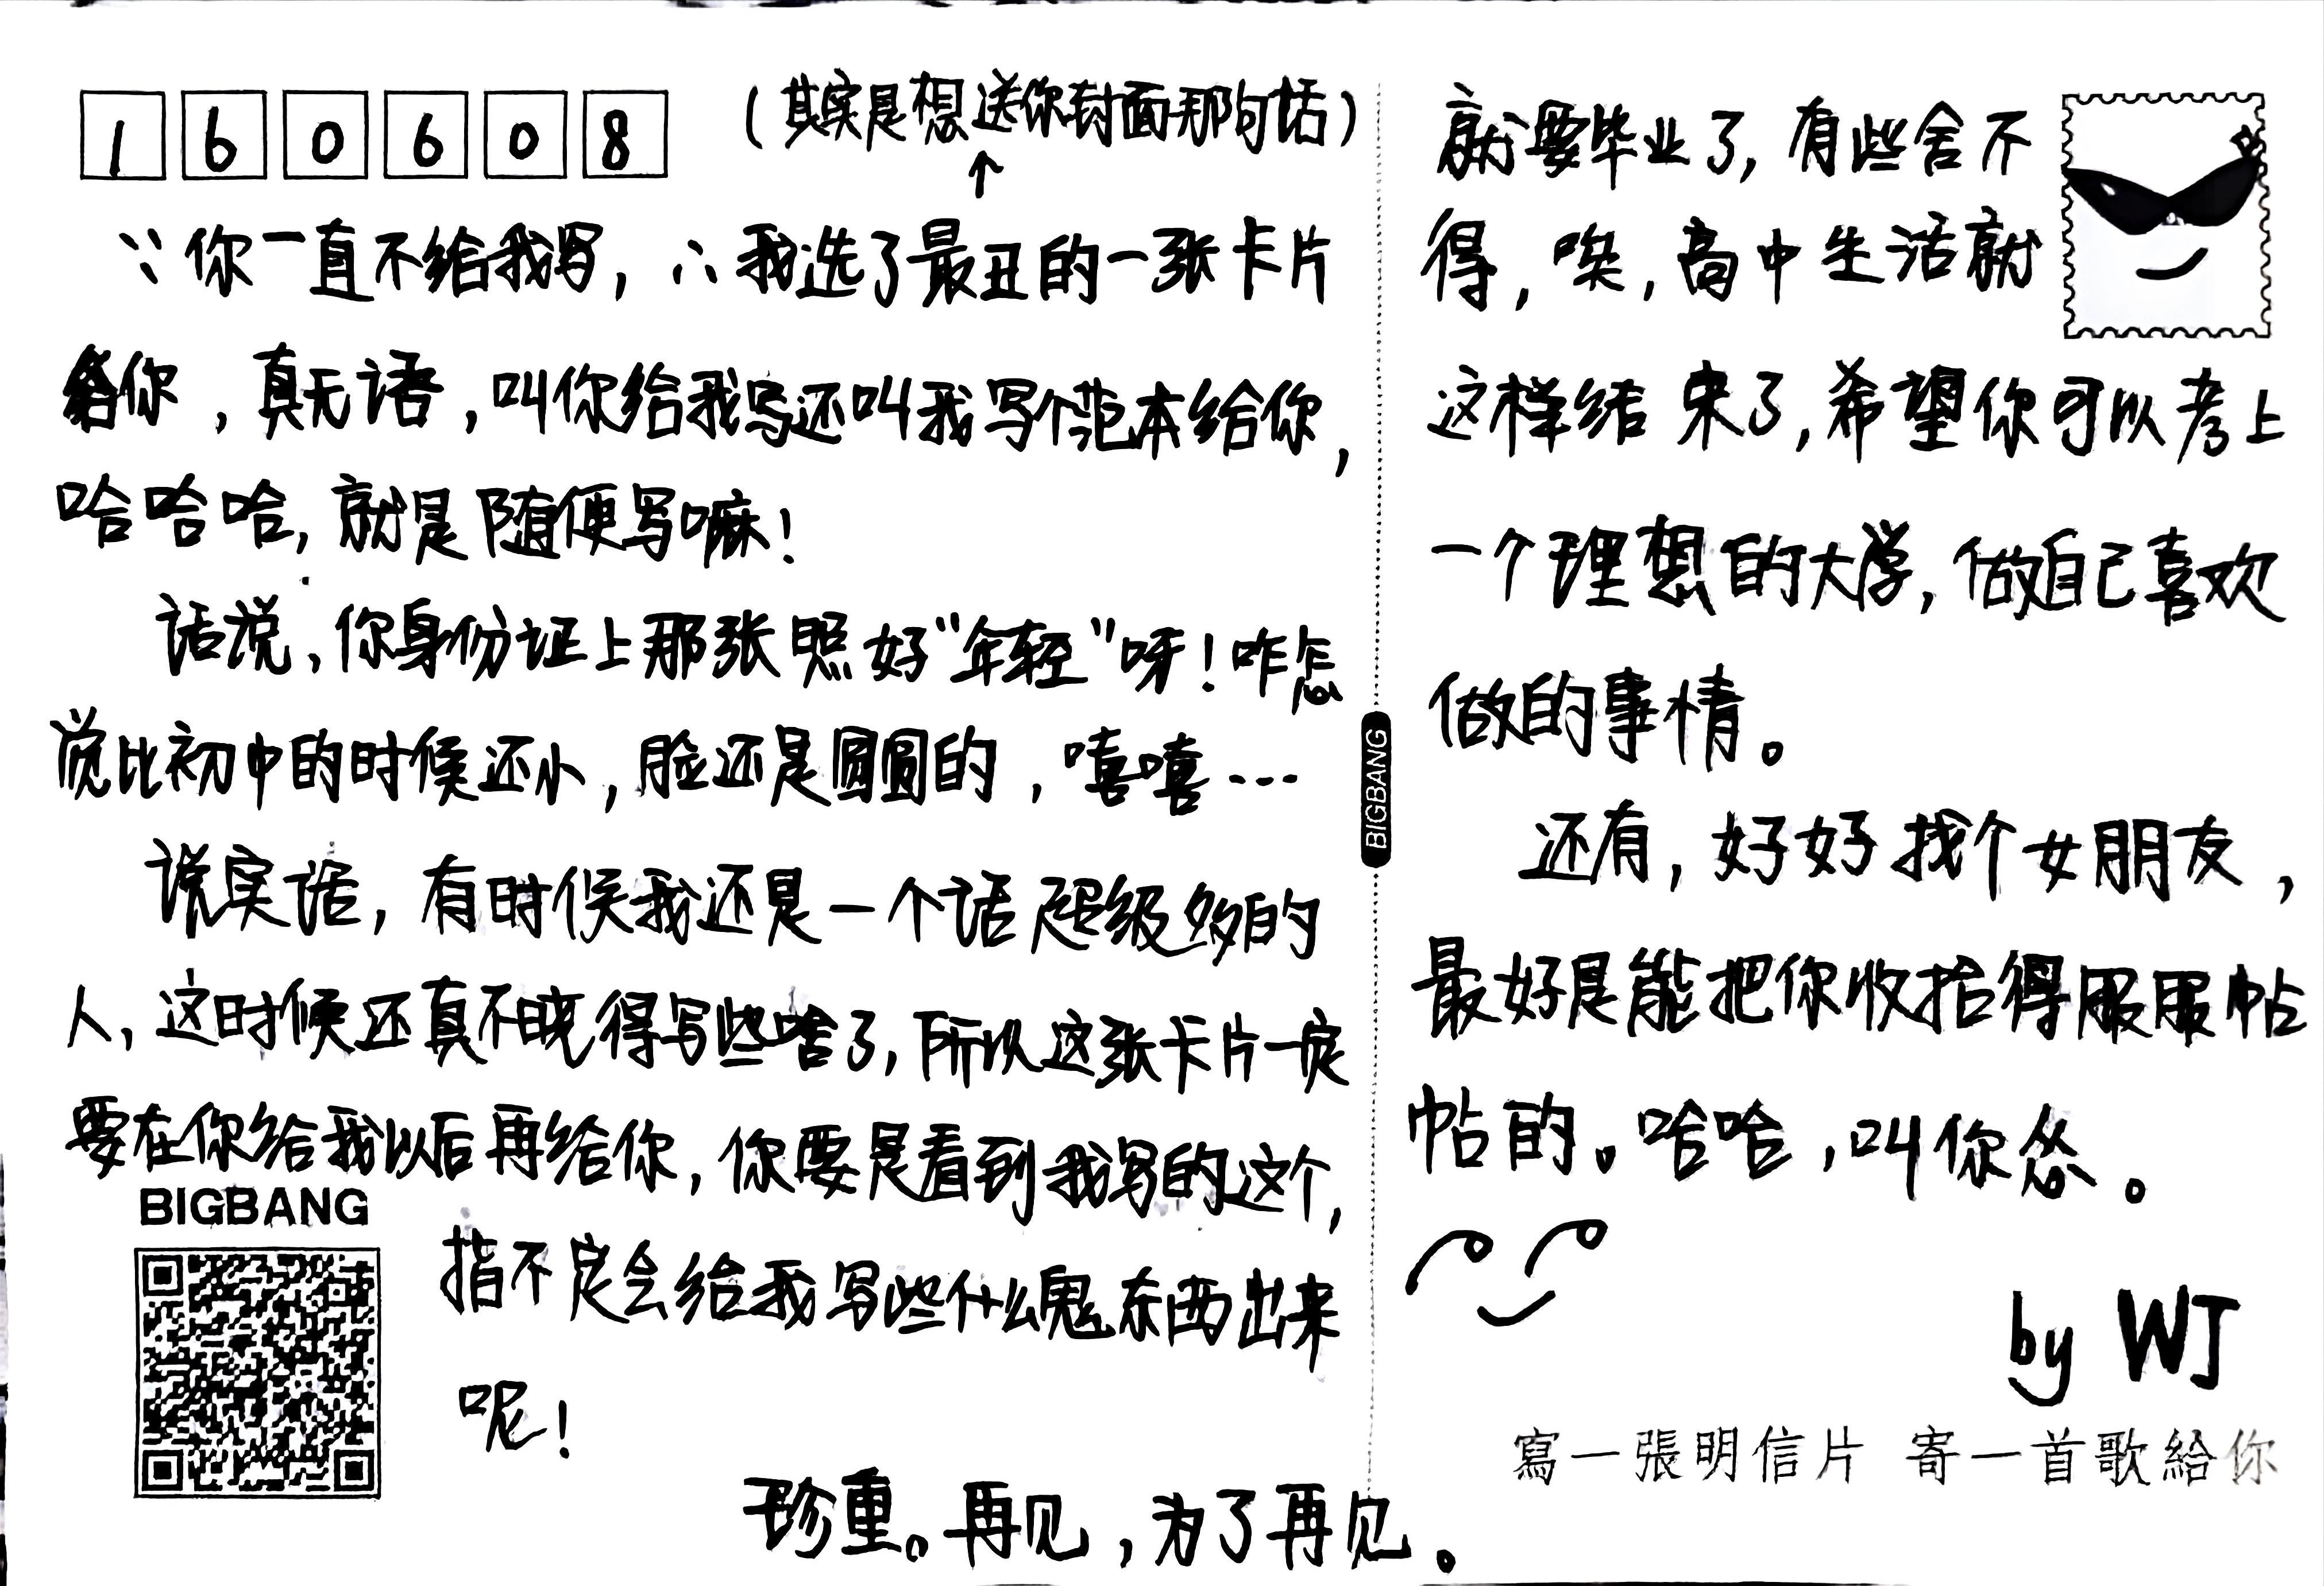 160608
（其实是想送你封面那句话）
↑
∵你一直不给我写，∴我选了最丑的一张卡片
给你，真无语，叫你给我写还叫我写个范本给你，
哈哈哈，就是随便写嘛！
话说，你身份证上那张照好“年轻”呀！咋感
觉比初中的时候还小，脸还是圆圆的，嘻嘻…
说实话，有时候我还是一个话超级多的
人，这时候还真不晓得写些啥了，所以这张卡片一定
要在你给我以后再给你，你要是看到我写的这个，
指不定会给我写些什么鬼东西出来
呢！
珍重。再见，为了再见。
BIGBANG
BIGBANG
就要毕业了，有些舍不
得，唉，高中生活就
这样结束了，希望你可以考上
一个理想的大学，做自己喜欢
做的事情。
还有，好好找个女朋友，
最好是能把你收拾得服服帖
帖的。哈哈，叫你怂。
by WJ
寫一張明信片 寄一首歌給你